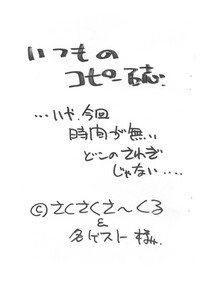 いつもの
コピー誌.
…いや.今回
時間が無い
どころのさわぎ
じゃない‥‥
©さくさくさ〜くる
&
各ゲスト様.